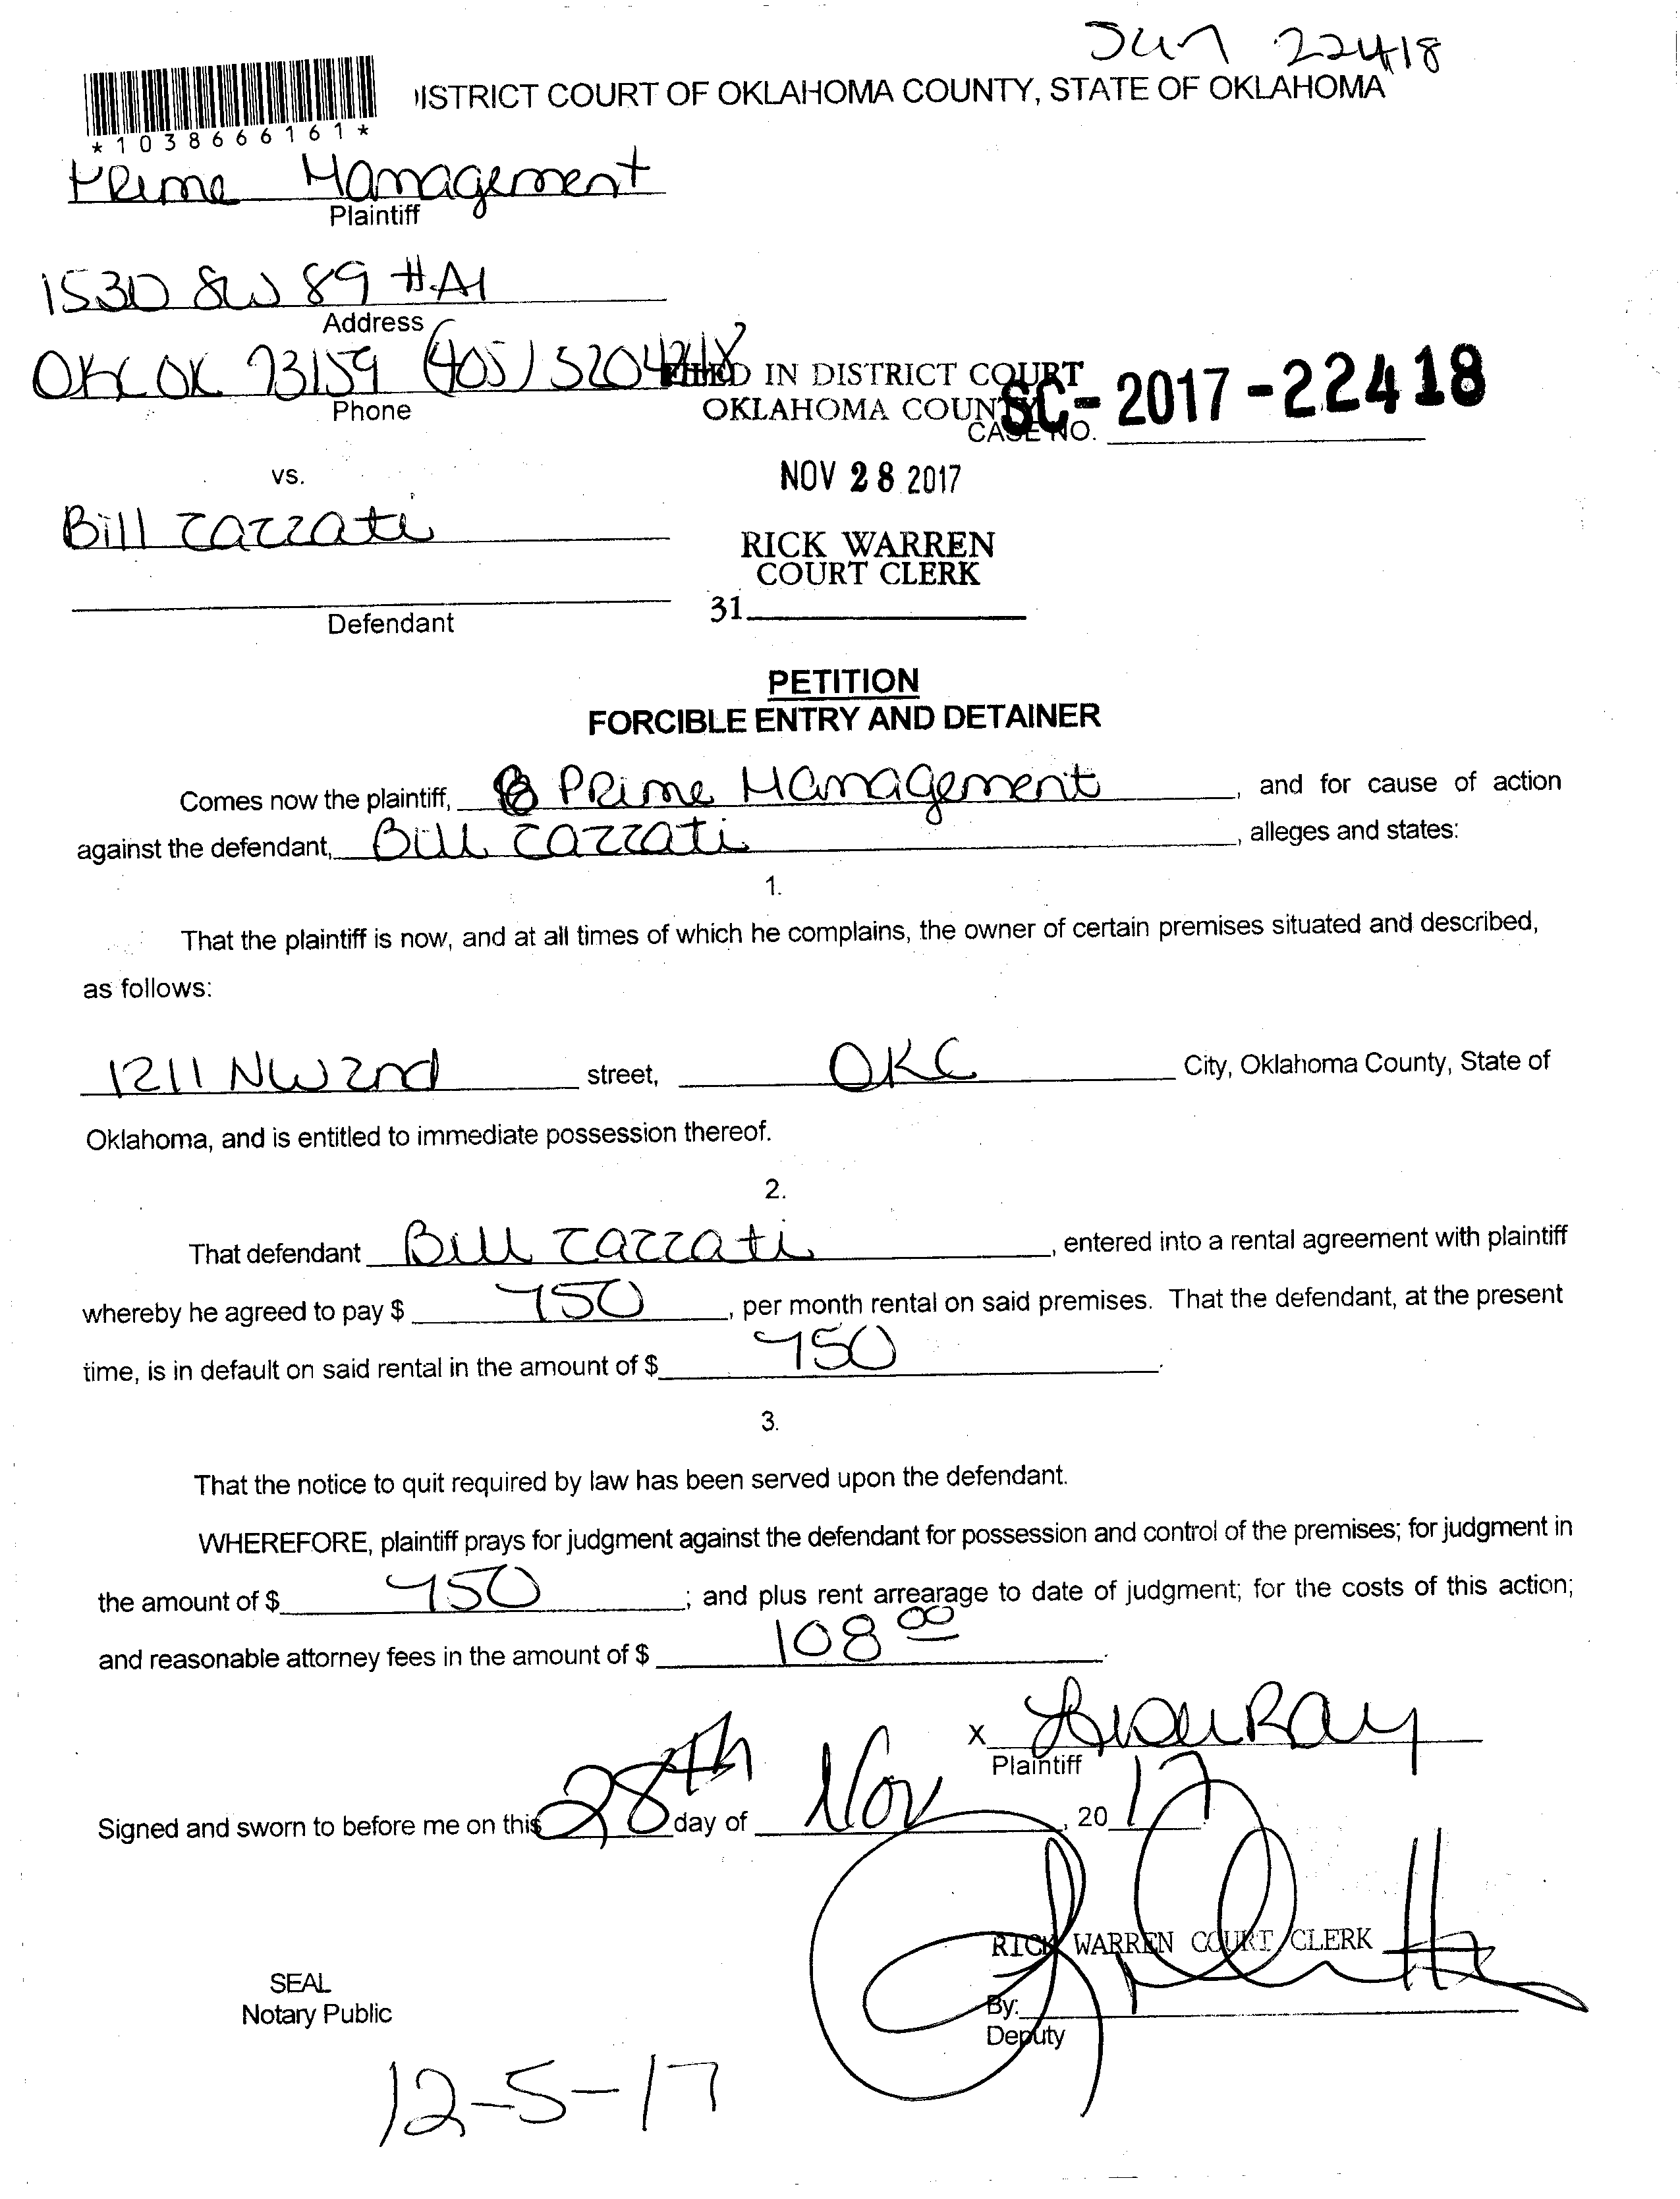 Jun 22418
DISTRICT COURT OF OKLAHOMA COUNTY, STATE OF OKLAHOMA
*1038666161*
PRime Management
Plaintiff
1530 SW 89 #A1
Address
OKC OK 73159 (405) 520
Phone
FILED IN DISTRICT COURT
OKLAHOMA COUNTY
SC-2017-22418
CASE NO.
vs.
NOV 28 2017
Bill zazzati
RICK WARREN
COURT CLERK
31
Defendant
PETITION
FORCIBLE ENTRY AND DETAINER
Comes now the plaintiff, PRime Management, and for cause of action
against the defendant, Bill zazzati, alleges and states:
1.
That the plaintiff is now, and at all times of which he complains, the owner of certain premises situated and described,
as follows:
1211 NW 2nd street, OKC City, Oklahoma County, State of
Oklahoma, and is entitled to immediate possession thereof.
2.
That defendant Bill zazzati, entered into a rental agreement with plaintiff
whereby he agreed to pay $ 750, per month rental on said premises. That the defendant, at the present
time, is in default on said rental in the amount of $ 750.
3.
That the notice to quit required by law has been served upon the defendant.
WHEREFORE, plaintiff prays for judgment against the defendant for possession and control of the premises; for judgment in
the amount of $ 750; and plus rent arrearage to date of judgment; for the costs of this action;
and reasonable attorney fees in the amount of $ 108 00.
x Ray
Plaintiff
Signed and sworn to before me on this 28th day of Nov, 20 17
RICK WARREN COURT CLERK
SEAL
Notary Public
By:
Deputy
12-5-17